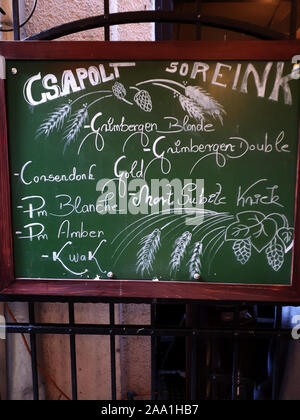 CSAPOLT SOREINK
-Grimbergen Blonde
-Grimbergen Double
-Corsendonk Gold
-Pm Blanche -Mort Subite Kriek
-Pm Amber
-Kwak
alamy
Image ID: 2AA1HB7
www.alamy.com